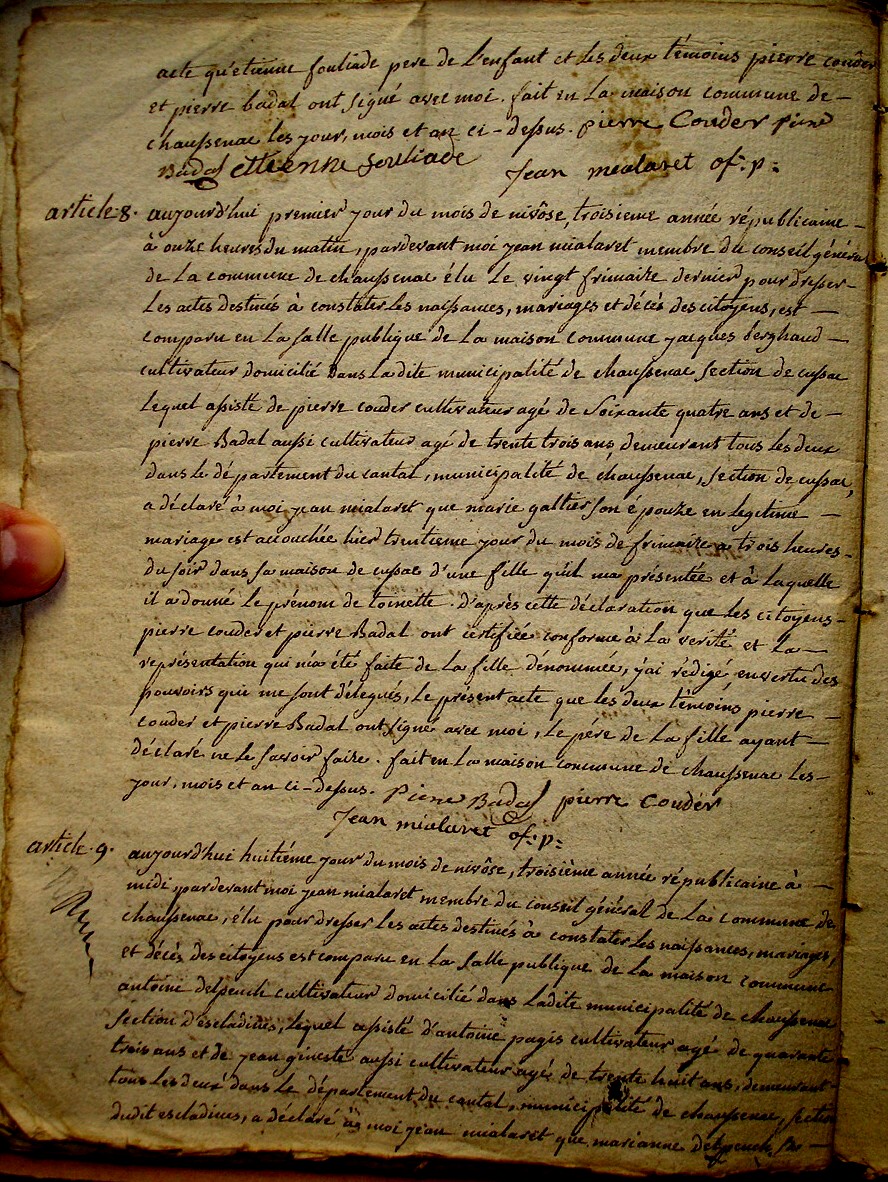 acte qu'etienne fouliade pere de l'enfant et les deux témoins pierre couder
et pierre badal ont signé avec moi. fait en la maison commune de –
chaussenac les jour, mois et an ci-dessus. pierre Couder piere
Badal ettienne fouliade
Jean mialaret of: p:
article 8. aujourd'hui premier jour du mois de nivôse, troisieme année républicaine –
à onze heures du matin, pardevant moi jean mialaret membre du conseil général
de la commune de chaussenac élu le vingt frimaire dernier pour dresser –
les actes destinés à constater les naissances, mariages et décès des citoyens, est –
comparu en la salle publique de la maison commune jacques berghaud –
cultivateur domicilié dans ladite municipalité de chaussenac section de cussac
lequel assisté de pierre couder cultivateur agé de soixante quatre ans et de –
pierre Badal aussi cultivateur agé de trente trois ans, demeurans tous les deux
dans le département du cantal, municipalité de chaussenac, section de cussac,
a déclaré à moi jean mialaret que marie galtier son épouze en legitime –
mariage est accouchée hier trentieme jour du mois de frimaire à trois heures –
du soir dans sa maison de cussac d'une fille qu'il ma présentée et à laquelle
il a donné le prénom de toinette. D'après cette déclaration que les citoyens –
pierre couder et pierre Badal ont certifiée conforme à la verité et la –
représentation qui m'a été faite de la fille dénommée, j'ai rédigé, en vertu des
pouvoirs qui me sont délegués, le présent acte que les deux témoins pierre –
couder et pierre Badal ont signé avec moi, le pére de la fille ayant –
déclaré ne le savoir faire. fait en la maison commune de chaussenac les –
jour, mois et an ci-dessus. Piere Badal pierre Couder
Jean mialaret of: p:
article. 9. aujourd'hui huitiéme jour du mois de nivôse, troisiéme année républicaine à –
midi, pardevant moi jean mialaret membre du conseil général de la commune de
chaussenac, élu pour dresser les actes destinés à constater les naissances, mariages,
et décès des citoyens est comparu en la salle publique de la maison commune
antoine delpeuch cultivateur domicilié dans ladite municipalité de chaussenac
section d'escladines, lequel assisté d'antoine pagis cultivateur agé de quarante
trois ans et de jean gineste aussi cultivateur agé de trente huit ans, demeurant
tous les deux dans le département du cantal, municipalité de chaussenac, section
dudit escladines, a déclaré à moi jean mialaret que marianne delpeuch, sa –